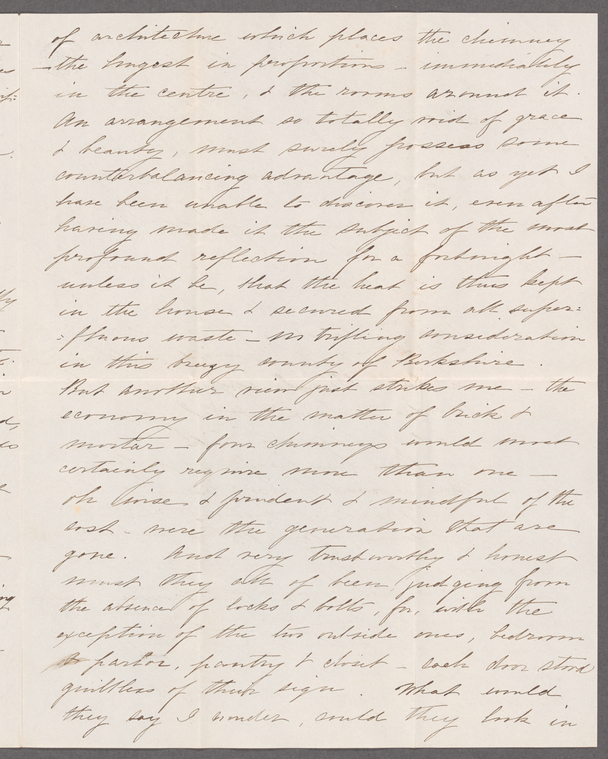 of architecture which places the chimney
– the largest in proportions – immediately
in the centre, & the rooms around it.
An arrangement so totally void of grace
& beauty, must surely possess some
counterbalancing advantage, but as yet I
have been unable to discover it, even after
having made it the subject of the most
profound reflection for a fortnight –
unless it be, that the heat is thus kept
in the house & secured from all super=
=fluous waste – no trifling consideration
in this breezy county of Berkshire.
But another view just strikes me – the
economy in the matter of brick &
mortar – four chimneys would most
certainly require more than one –
oh wise & prudent & mindful of the
cost – were the generation that are
gone. And very trustworthy & honest
must they all of been judging from
the absence of locks & bolts, for, with the
exception of the two outside ones, bedroom
parlor, pantry & closet – each door stood
guiltless of their sign. What would
they say I wonder, could they look in